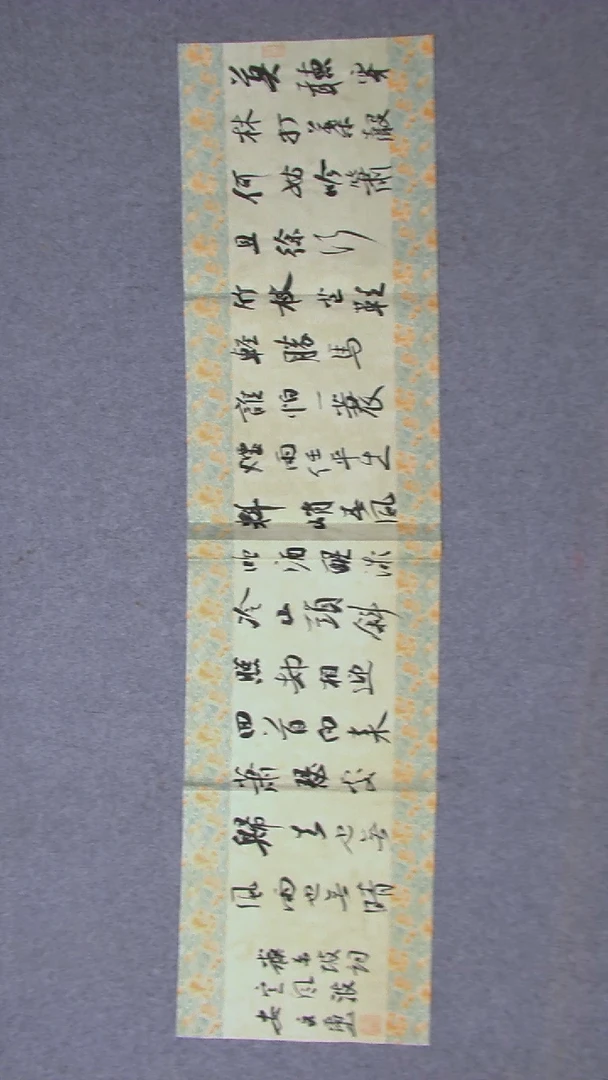 莫聽穿
林打葉聲
何妨吟嘯
且徐行
竹杖芒鞋
輕勝馬
誰怕一蓑
煙雨任平生
料峭春風
吹酒醒微
冷山頭斜
照却相迎
回首向來
蕭瑟處
歸去也無
風雨也無晴
蘇東坡詞
定風波